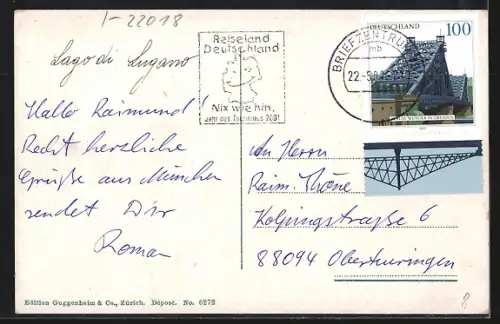 1-22018
Lago di Lugano
Hallo Raimund!
Recht herzliche
Grüße aus München
sendet Dir
Roman
Reiseland
Deutschland
Nix wie hin.
Jahr des Tourismus 2001
BRIEFZENTRUM
mb
22-5.0
DEUTSCHLAND 100
BLAUES WUNDER IN DRESDEN
An Herrn
Raim. Thöne
Kolpingstraße 6
88094 Oberteuringen
Edition Guggenheim & Co., Zürich. Déposé. No. 6272
8